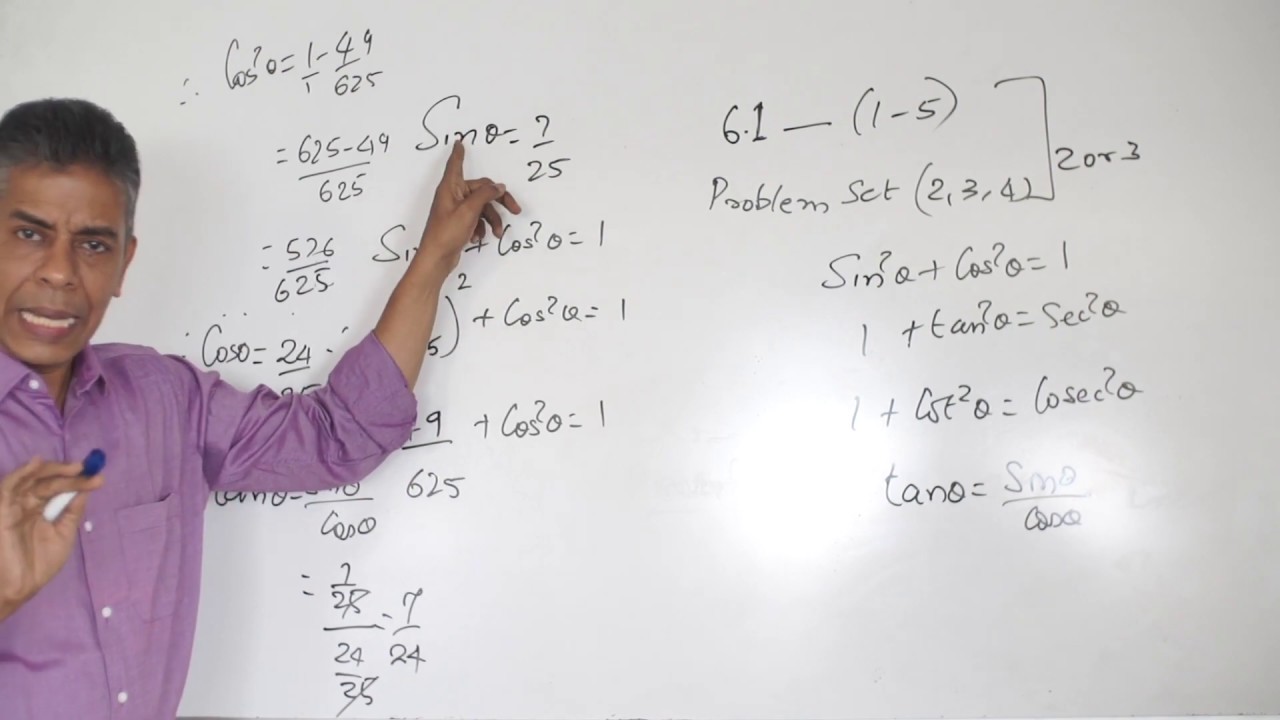 ∴ Cos²θ = 1/1 - 49/625
= 625-49/625
= 576/625
∴ Cosθ = 24
Sinθ = 7/25
+ Cos²θ = 1
)² + Cos²θ = 1
+ Cos²θ = 1
625
Cosθ
= 7/25 / 24/25 = 7/24
6.1 — (1-5)
Problem Set (2,3,4)
2 or 3
Sin²θ + Cos²θ = 1
1 + tan²θ = Sec²θ
1 + Cot²θ = Cosec²θ
tanθ = Sinθ/Cosθ